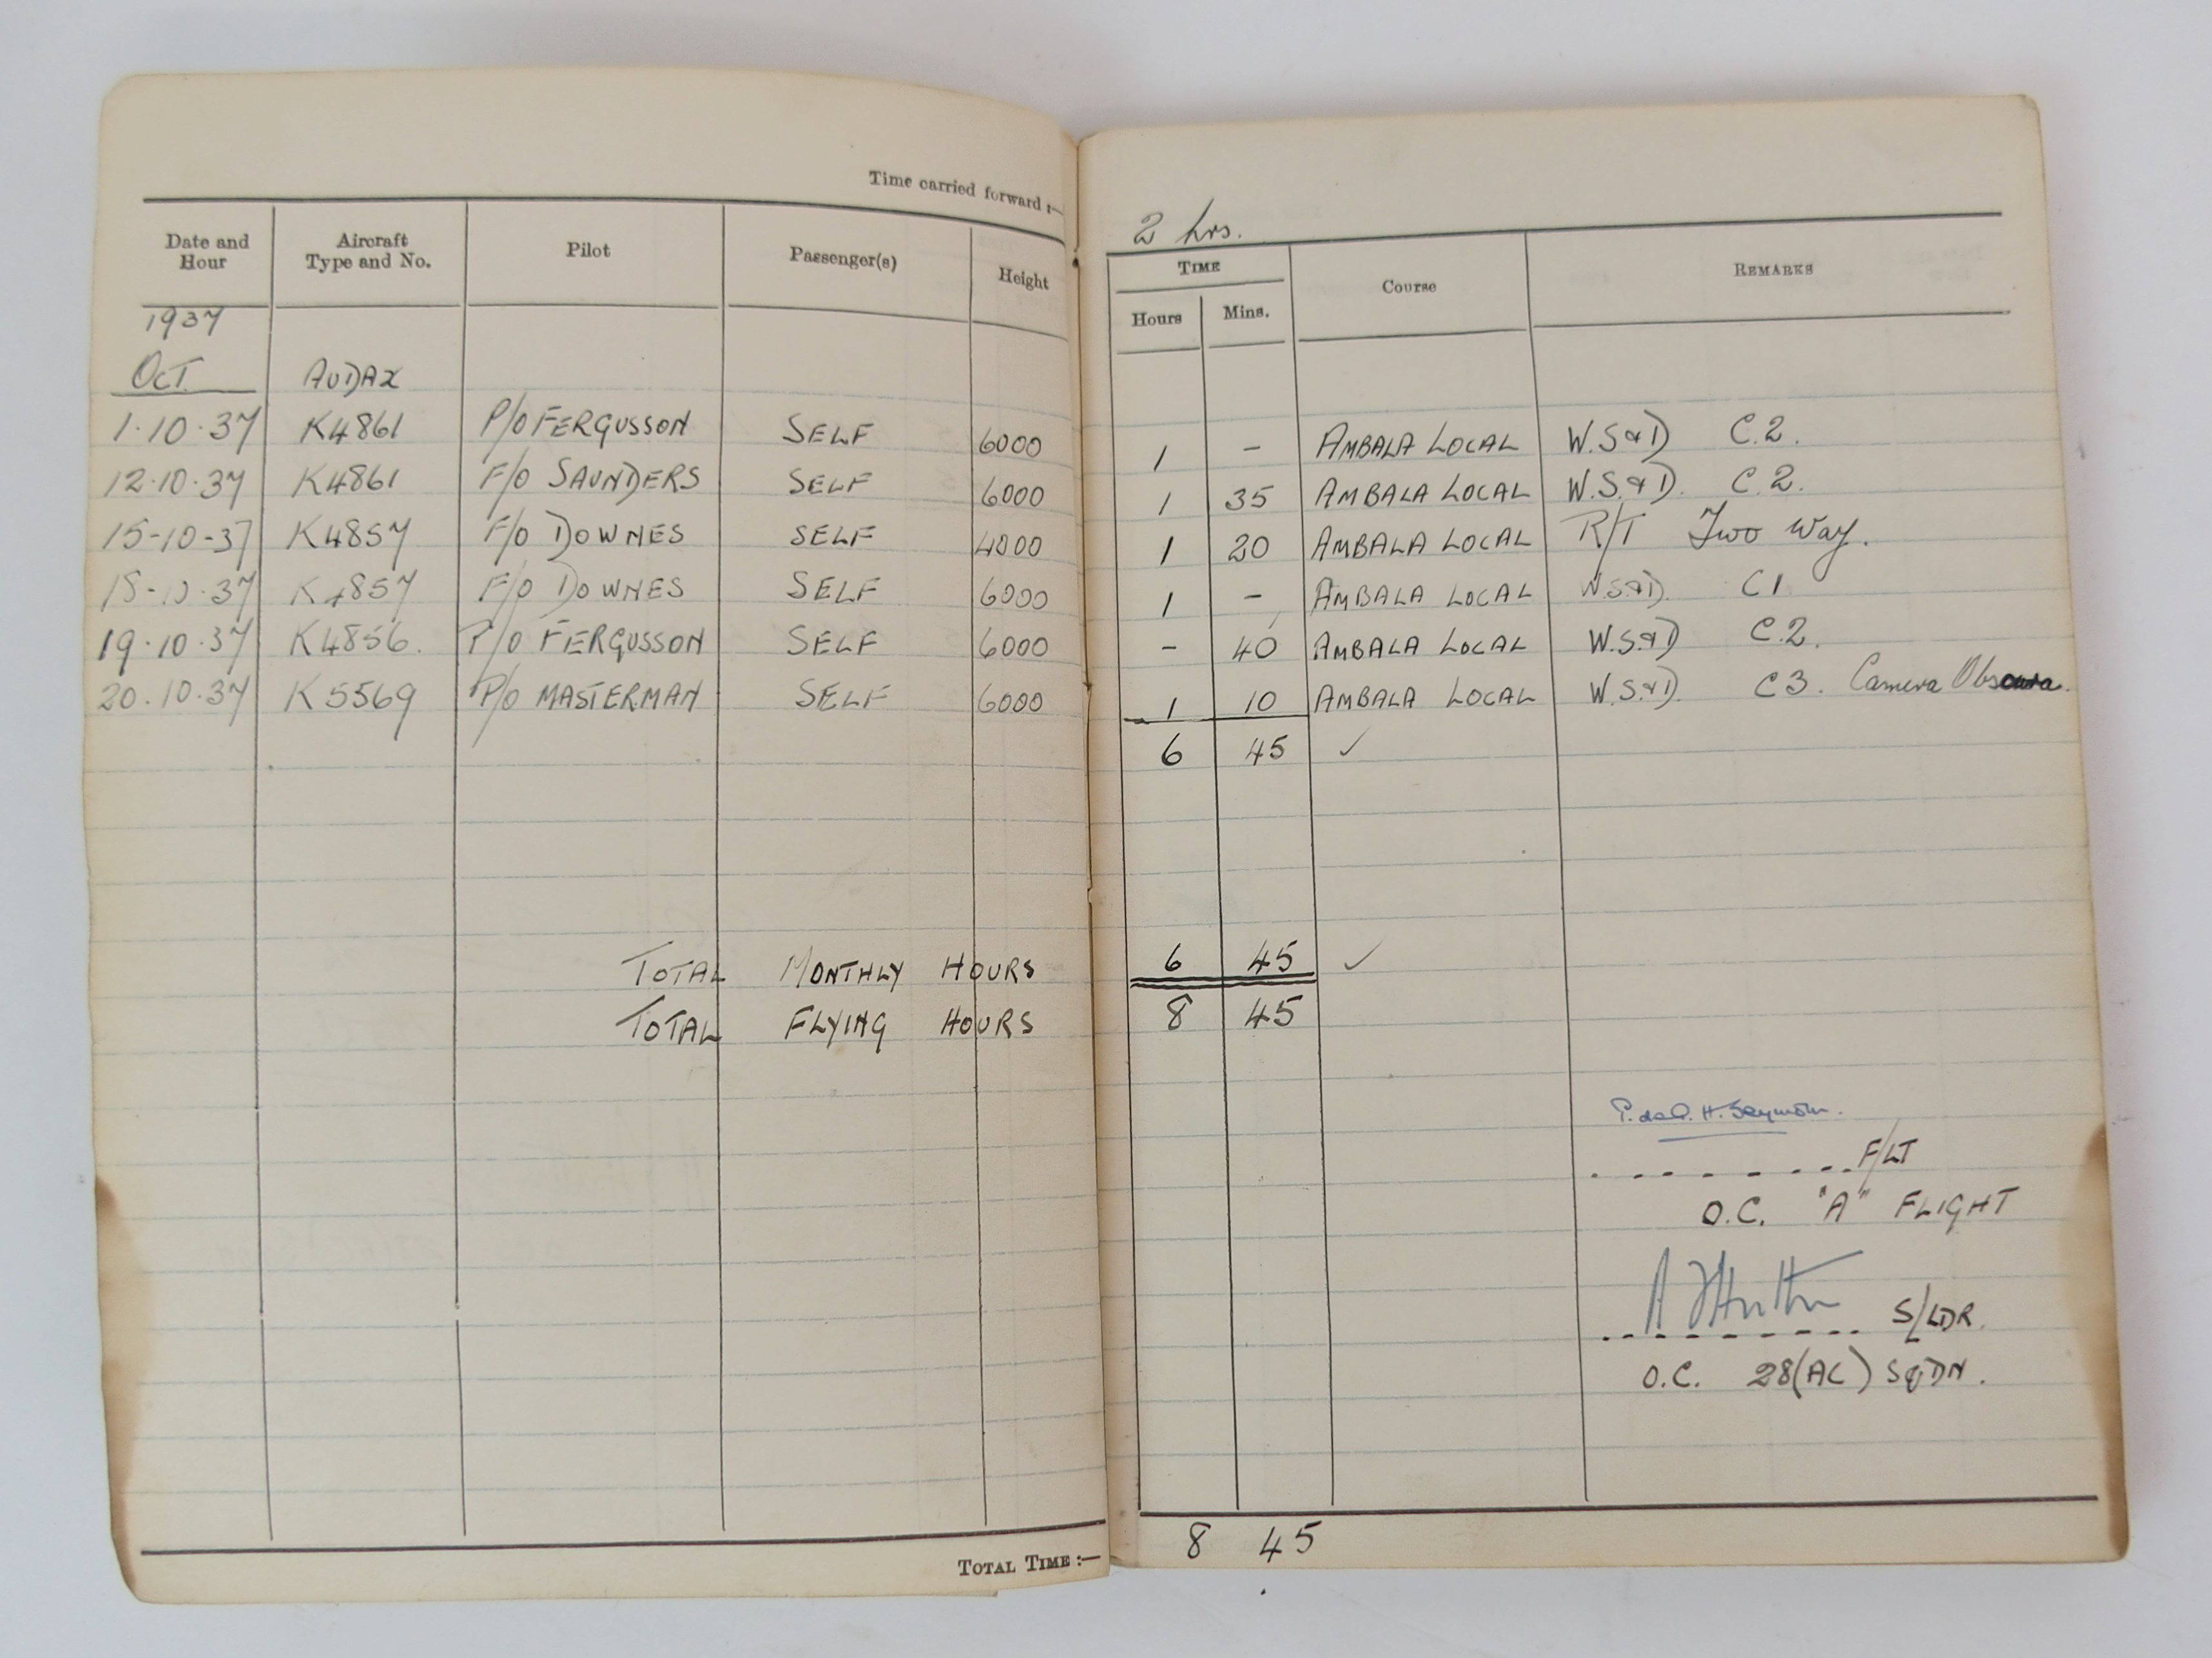 Time carried forward :—
2 hrs.
Date and Hour Aircraft Type and No. Pilot Passenger(s) Height TIME Hours Mins. Course REMARKS
1937
OCT. AUDAX
1.10.37 K4861 P/O FERGUSSON SELF 6000 1 - AMBALA LOCAL W.S.&D C.2.
12.10.37 K4861 F/O SAUNDERS SELF 6000 1 35 AMBALA LOCAL W.S.&D. C.2.
15-10-37 K4857 F/O DOWNES SELF 4000 1 20 AMBALA LOCAL R/T Two Way.
18-10-37 K4857 F/O DOWNES SELF 6000 1 - AMBALA LOCAL W.S.&D. C1
19.10.37 K4856. P/O FERGUSSON SELF 6000 - 40 AMBALA LOCAL W.S.&D C.2.
20.10.37 K5569 P/O MASTERMAN SELF 6000 1 10 AMBALA LOCAL W.S.&D. C3. Camera Obscura.
6 45 ✓
TOTAL MONTHLY HOURS 6 45 ✓
TOTAL FLYING HOURS 8 45
H. Seymour.
F/LT
O.C. "A" FLIGHT
S/LDR.
O.C. 28(AC) SQDN.
TOTAL TIME :— 8 45